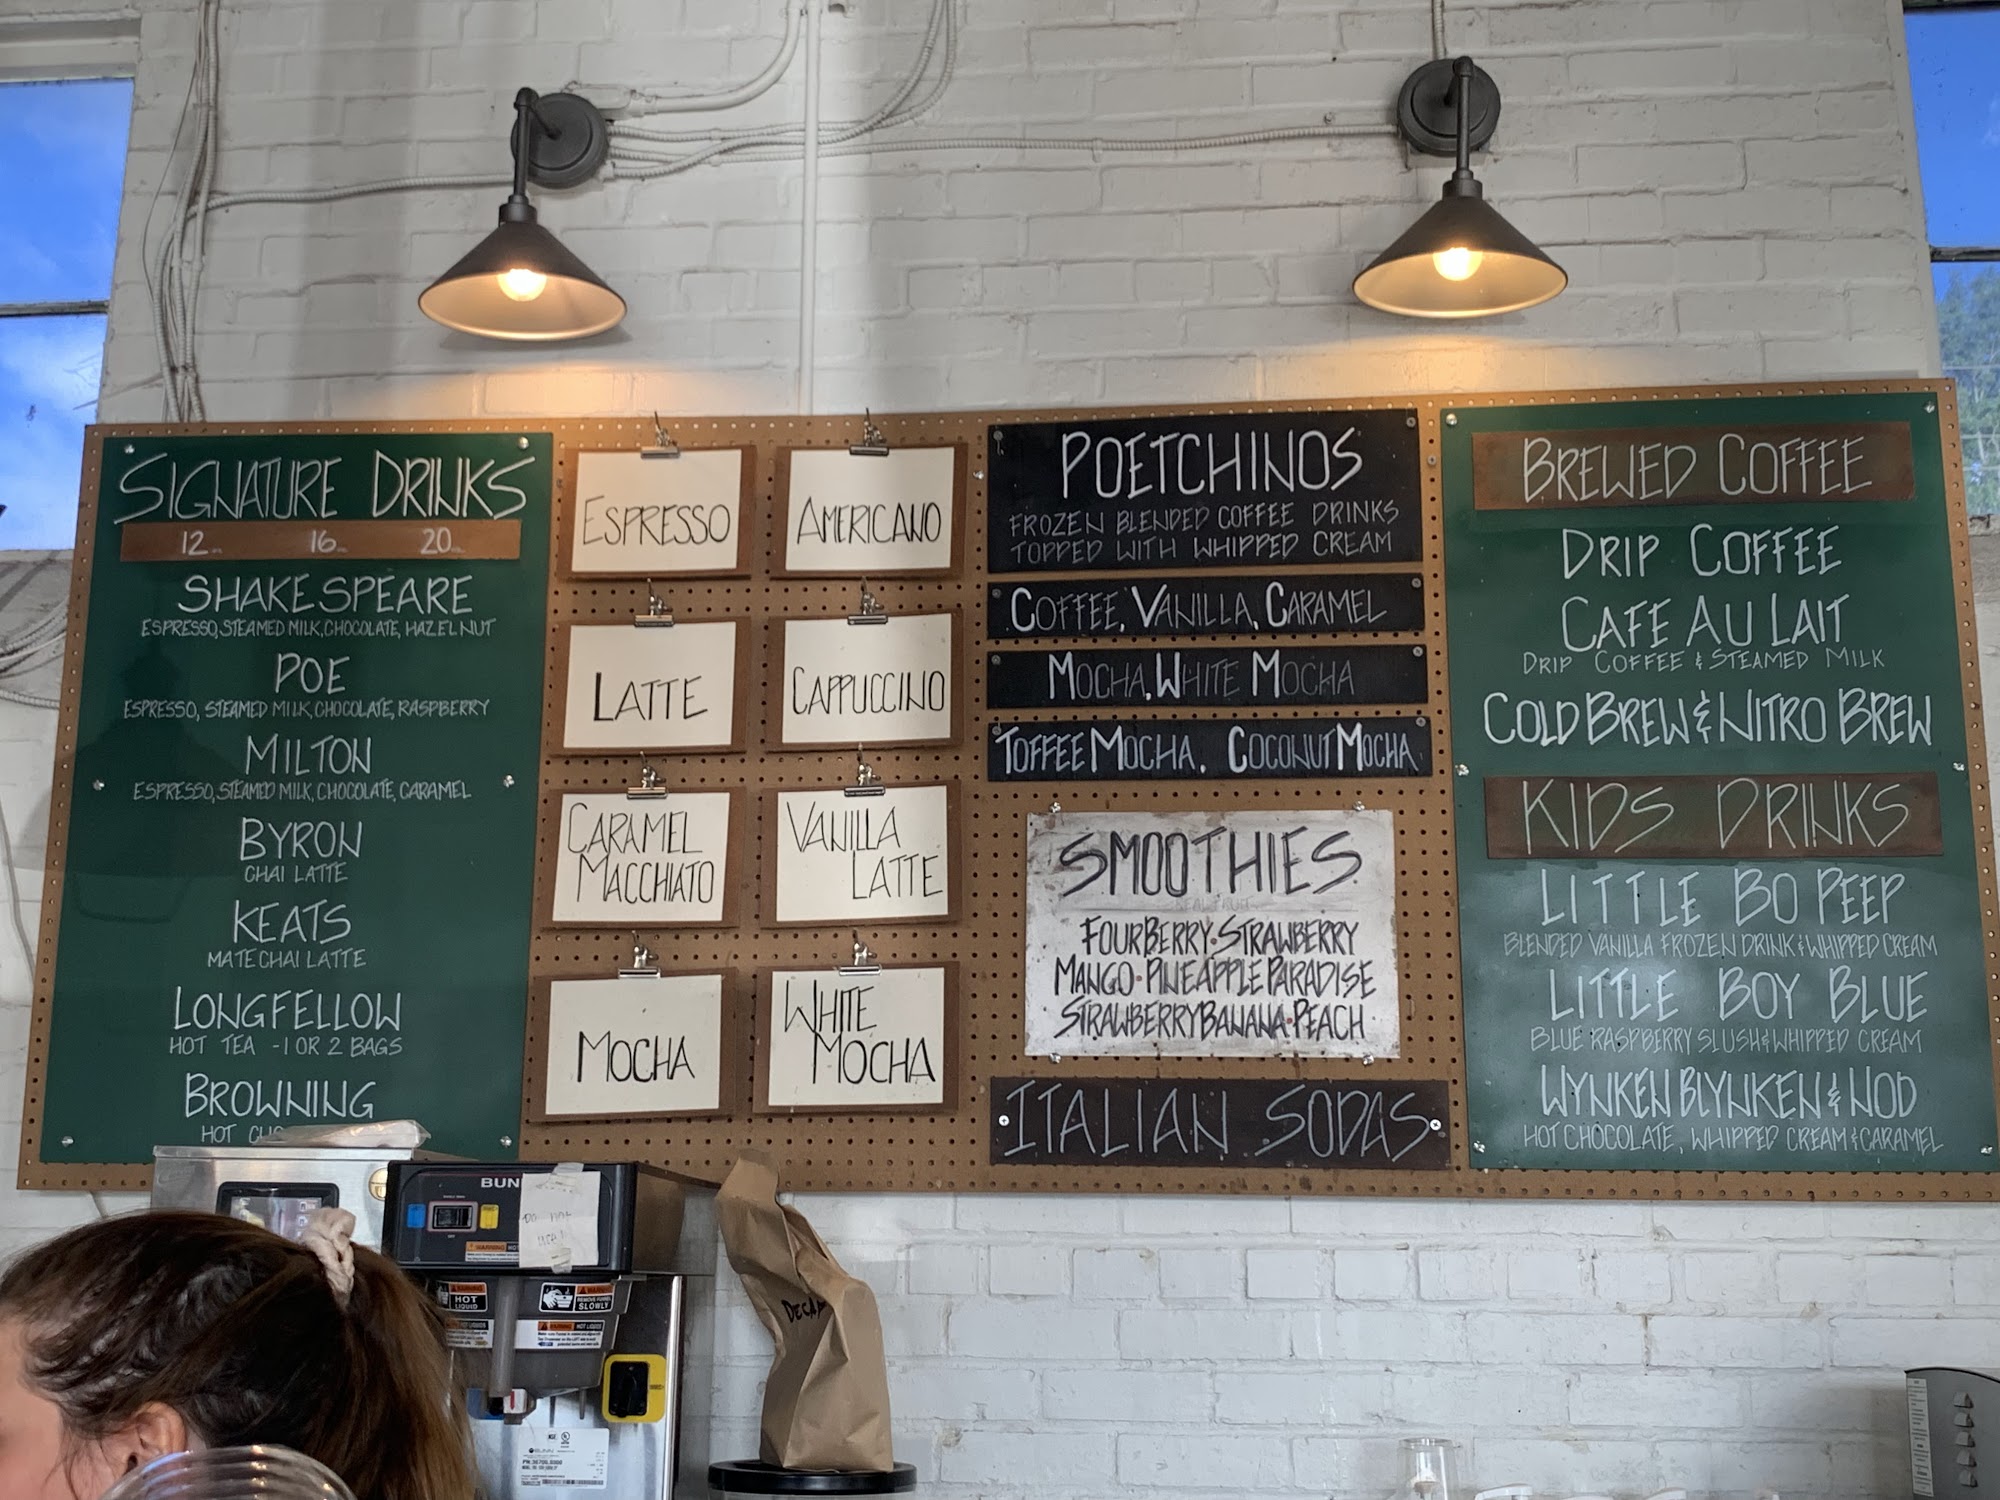 SIGNATURE DRINKS
12 oz 16 oz 20 oz
SHAKESPEARE
ESPRESSO, STEAMED MILK, CHOCOLATE, HAZELNUT
POE
ESPRESSO, STEAMED MILK, CHOCOLATE, RASPBERRY
MILTON
ESPRESSO, STEAMED MILK, CHOCOLATE, CARAMEL
BYRON
CHAI LATTE
KEATS
MATE CHAI LATTE
LONGFELLOW
HOT TEA - 1 OR 2 BAGS
BROWNING
HOT
ESPRESSO
AMERICANO
LATTE
CAPPUCCINO
CARAMEL
MACCHIATO
VANILLA
LATTE
MOCHA
WHITE
MOCHA
POETCHINOS
FROZEN BLENDED COFFEE DRINKS
TOPPED WITH WHIPPED CREAM
COFFEE, VANILLA, CARAMEL
MOCHA, WHITE MOCHA
TOFFEE MOCHA, COCONUT MOCHA
SMOOTHIES
REAL FRUIT
FOURBERRY · STRAWBERRY
MANGO · PINEAPPLE PARADISE
STRAWBERRY BANANA · PEACH
ITALIAN SODAS
BREWED COFFEE
DRIP COFFEE
CAFE AU LAIT
DRIP COFFEE & STEAMED MILK
COLD BREW & NITRO BREW
KIDS DRINKS
LITTLE BO PEEP
BLENDED VANILLA FROZEN DRINK & WHIPPED CREAM
LITTLE BOY BLUE
BLUE RASPBERRY SLUSH & WHIPPED CREAM
WYNKEN BLYNKEN & NOD
HOT CHOCOLATE, WHIPPED CREAM & CARAMEL
BUN
DO NOT
USE!
WARNING
WARNING
HOT
LIQUID
WARNING
REMOVE FUNNEL
SLOWLY
HOT LIQUIDS
WARNING HOT LIQUIDS
BUNN
DECA